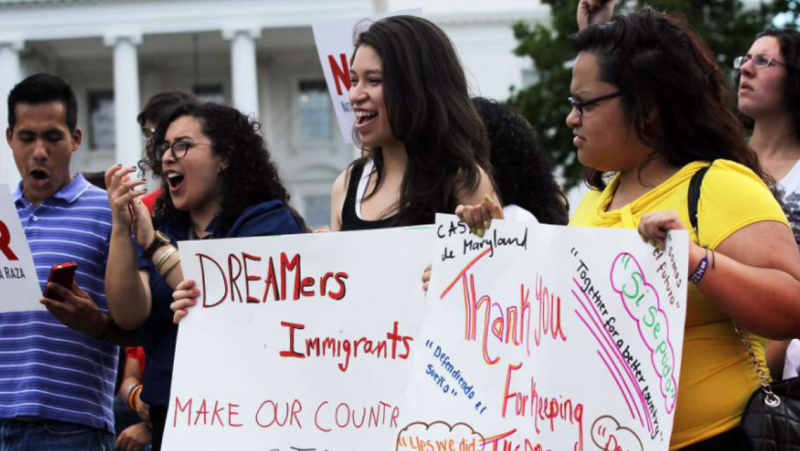 R
A RAZA
N
DREAMers
Immigrants
MAKE OUR COUNTR
CASA
de Maryland
Thank you
For Keeping
"Defendiendo el
Sueño"
"Yes we did
"Together for a better country"
"Si Se pudo"
somos
el futuro